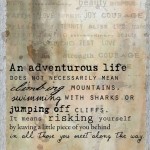 An adventurous life
DOES NOT NECESSARILY MEAN
climbing MOUNTAINS,
swimming WITH SHARKS OR
jumping off CLIFFS.
It means risking yourself
by leaving a little piece of you behind
in all those you meet along the way